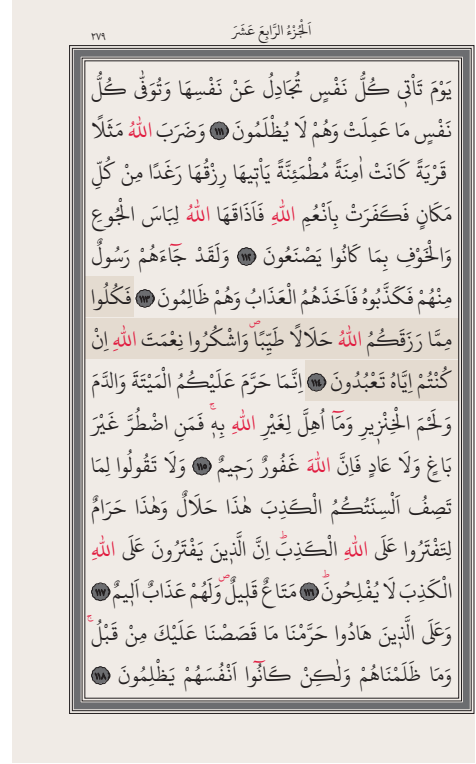 ٢٧٩ اَلْجُزْءُ الرَّابِعَ عَشَرَ
يَوْمَ تَأْتٖي كُلُّ نَفْسٍ تُجَادِلُ عَنْ نَفْسِهَا وَتُوَفّٰى كُلُّ
نَفْسٍ مَا عَمِلَتْ وَهُمْ لَا يُظْلَمُونَ ﴿١١١﴾ وَضَرَبَ اللّٰهُ مَثَلًا
قَرْيَةً كَانَتْ اٰمِنَةً مُطْمَئِنَّةً يَأْتٖيهَا رِزْقُهَا رَغَدًا مِنْ كُلِّ
مَكَانٍ فَكَفَرَتْ بِاَنْعُمِ اللّٰهِ فَاَذَاقَهَا اللّٰهُ لِبَاسَ الْجُوعِ
وَالْخَوْفِ بِمَا كَانُوا يَصْنَعُونَ ﴿١١٢﴾ وَلَقَدْ جَٓاءَهُمْ رَسُولٌ
مِنْهُمْ فَكَذَّبُوهُ فَاَخَذَهُمُ الْعَذَابُ وَهُمْ ظَالِمُونَ ﴿١١٣﴾ فَكُلُوا
مِمَّا رَزَقَكُمُ اللّٰهُ حَلَالًا طَيِّبًاۖ وَاشْكُرُوا نِعْمَتَ اللّٰهِ اِنْ
كُنْتُمْ اِيَّاهُ تَعْبُدُونَ ﴿١١٤﴾ اِنَّمَا حَرَّمَ عَلَيْكُمُ الْمَيْتَةَ وَالدَّمَ
وَلَحْمَ الْخِنْزٖيرِ وَمَٓا اُهِلَّ لِغَيْرِ اللّٰهِ بِهٖۚ فَمَنِ اضْطُرَّ غَيْرَ
بَاغٍ وَلَا عَادٍ فَاِنَّ اللّٰهَ غَفُورٌ رَحٖيمٌ ﴿١١٥﴾ وَلَا تَقُولُوا لِمَا
تَصِفُ اَلْسِنَتُكُمُ الْكَذِبَ هٰذَا حَلَالٌ وَهٰذَا حَرَامٌ
لِتَفْتَرُوا عَلَى اللّٰهِ الْكَذِبَؕ اِنَّ الَّذٖينَ يَفْتَرُونَ عَلَى اللّٰهِ
الْكَذِبَ لَا يُفْلِحُونَؕ ﴿١١٦﴾ مَتَاعٌ قَلٖيلٌۖ وَلَهُمْ عَذَابٌ اَلٖيمٌ ﴿١١٧﴾
وَعَلَى الَّذٖينَ هَادُوا حَرَّمْنَا مَا قَصَصْنَا عَلَيْكَ مِنْ قَبْلُۚ
وَمَا ظَلَمْنَاهُمْ وَلٰكِنْ كَانُٓوا اَنْفُسَهُمْ يَظْلِمُونَ ﴿١١٨﴾